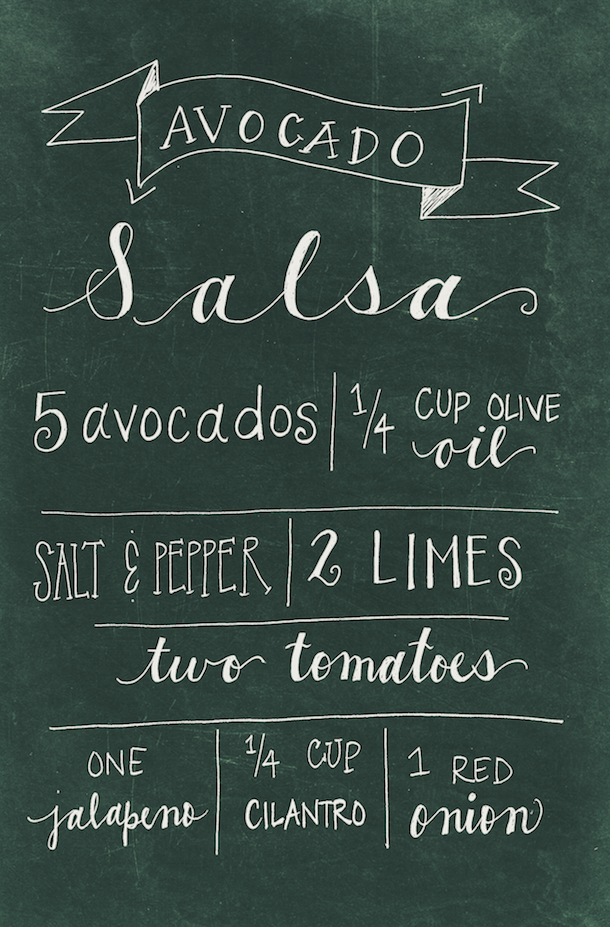 AVOCADO
Salsa
5 avocados
1/4 CUP OLIVE
oil
SALT & PEPPER
2 LIMES
two tomatoes
ONE
jalapeno
1/4 CUP
CILANTRO
1 RED
onion